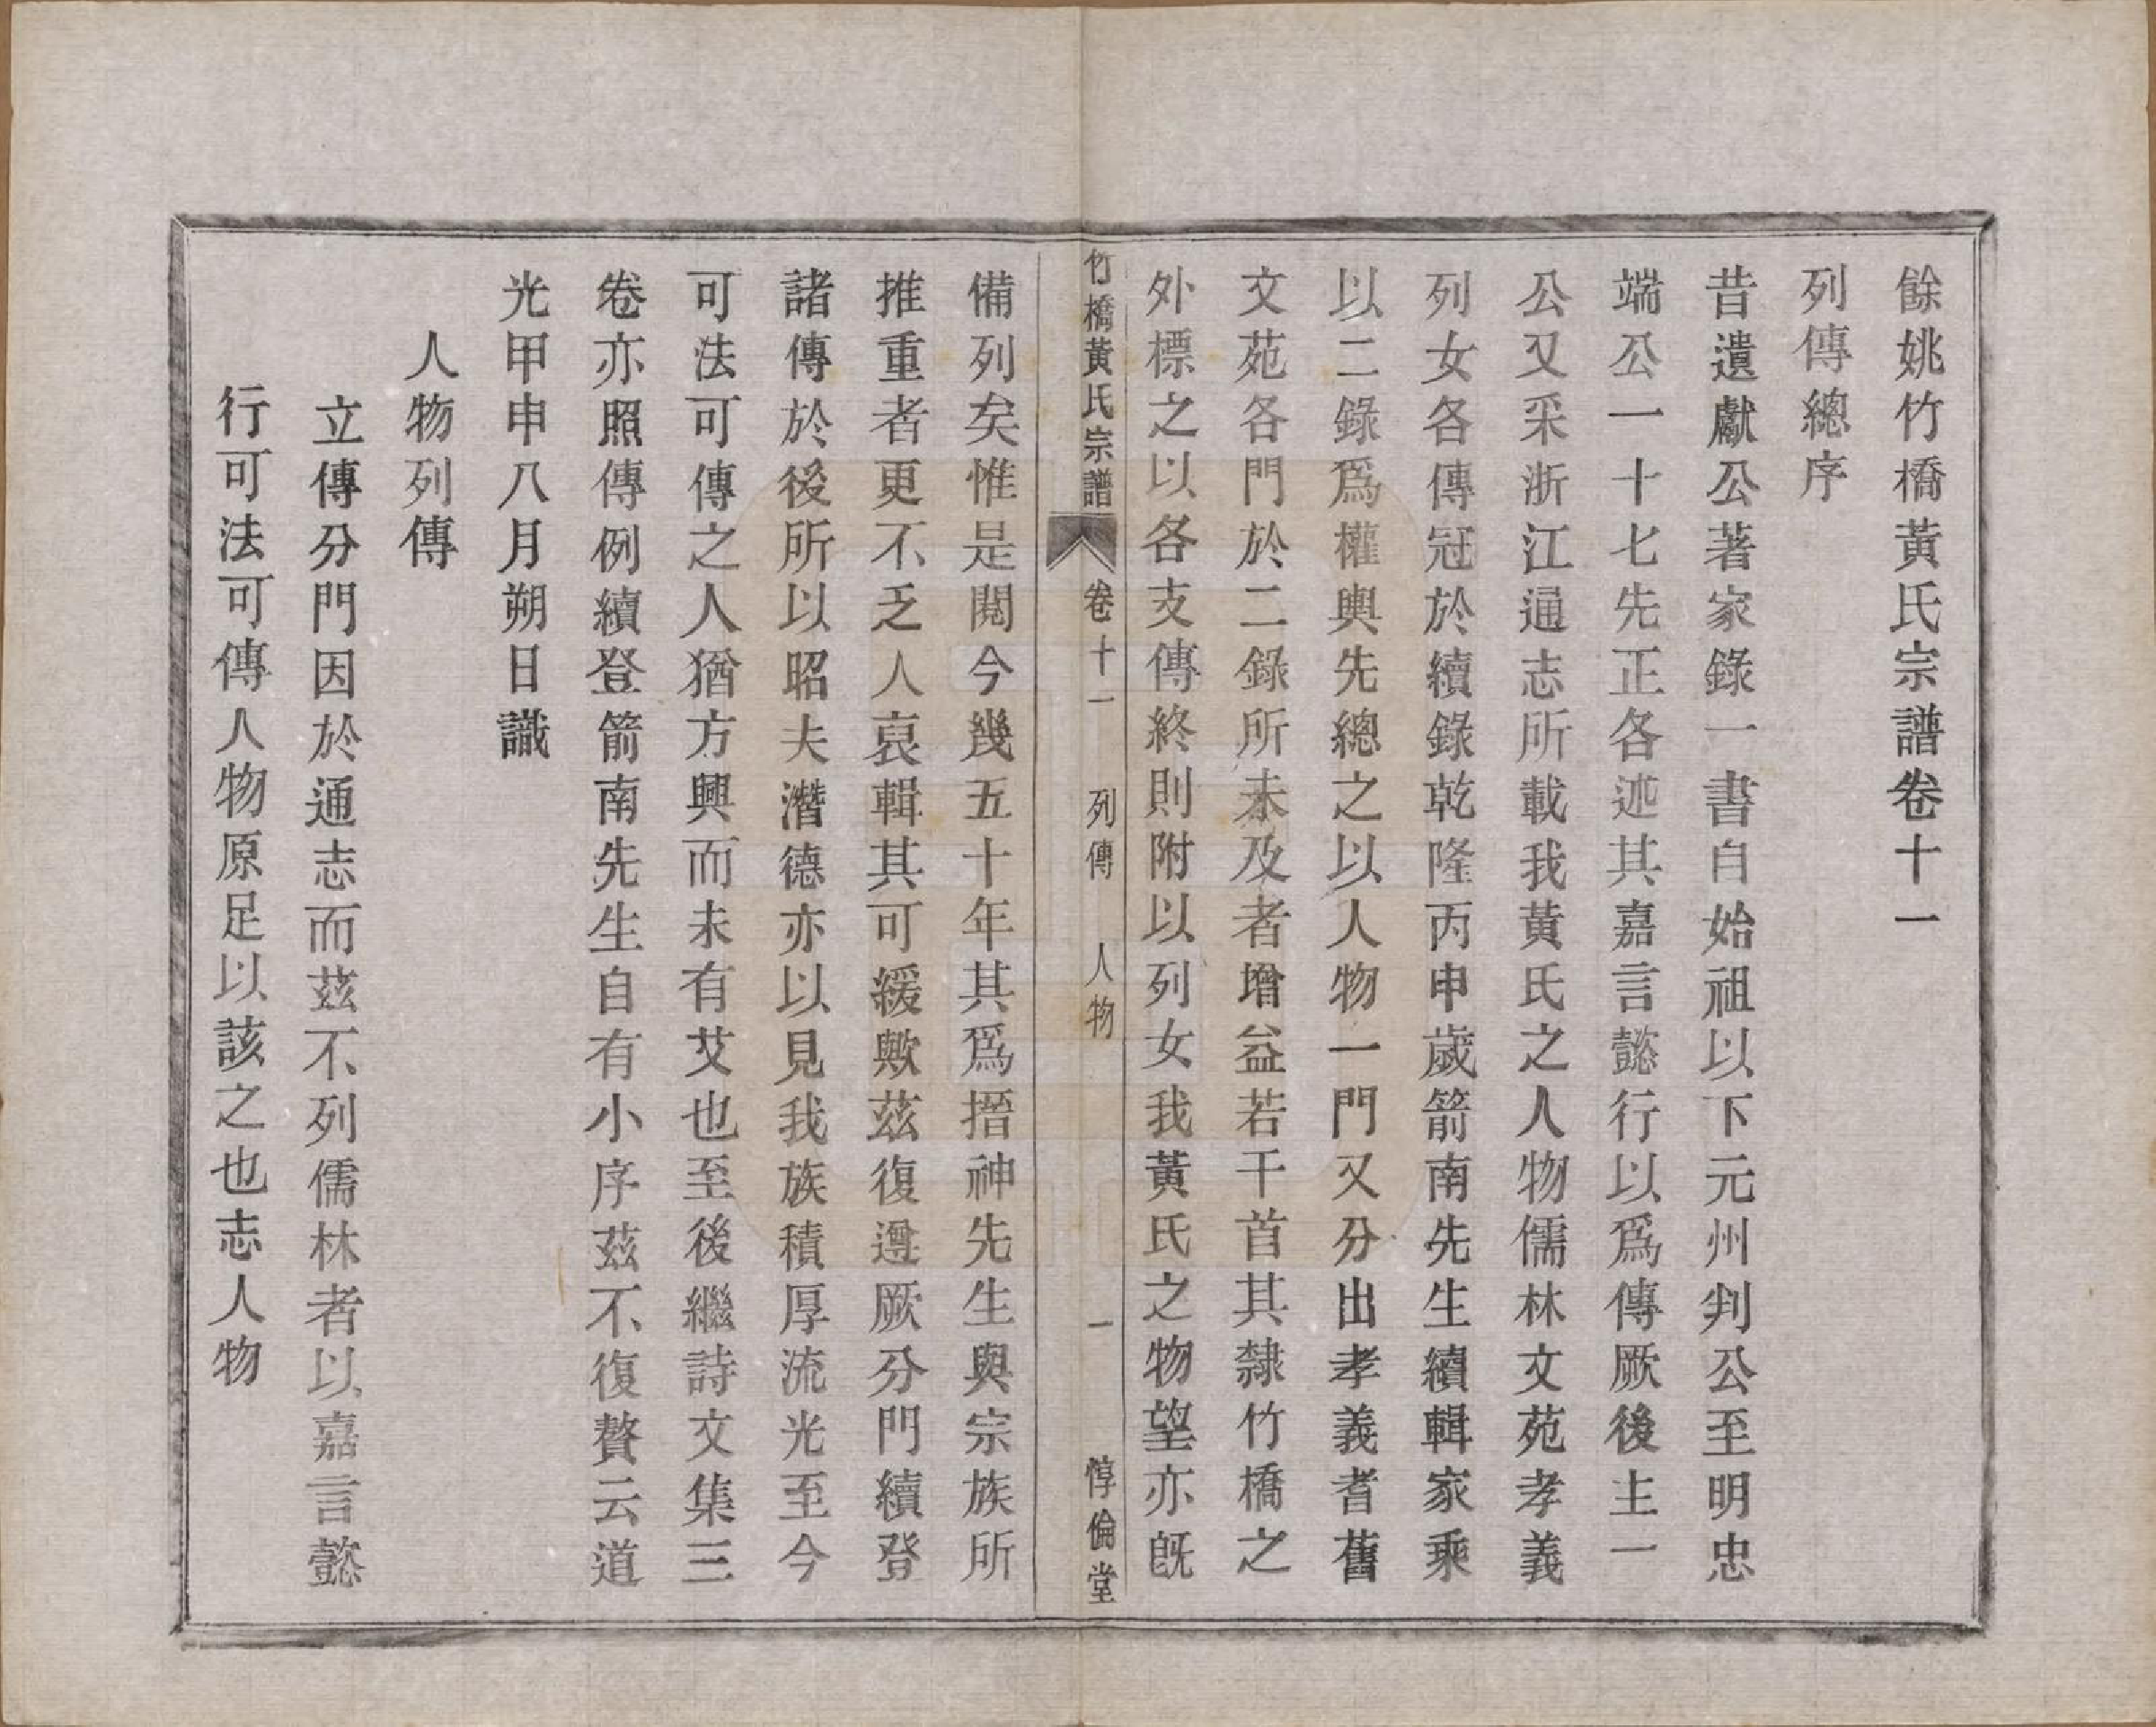 餘姚竹橋黃氏宗譜卷十一
列傳總序
昔遺獻公著家錄一書自始祖以下元州判公至明忠
端公一十七先正各述其嘉言懿行以爲傳厥後主一
公又采浙江通志所載我黃氏之人物儒林文苑孝義
列女各傳冠於續錄乾隆丙申歲箭南先生續輯家乘
以二錄爲權輿先總之以人物一門又分出孝義耆舊
文苑各門於二錄所未及者增益若干首其隸竹橋之
外標之以各支傳終則附以列女我黃氏之物望亦旣
竹橋黃氏宗譜 卷十一 列傳 人物 一 惇倫堂
備列矣惟是閱今幾五十年其爲搢神先生與宗族所
推重者更不乏人裒輯其可緩歟茲復遵厥分門續登
諸傳於後所以昭夫潛德亦以見我族積厚流光至今
可法可傳之人猶方興而未有艾也至後繼詩文集三
卷亦照傳例續登箭南先生自有小序茲不復贅云道
光甲申八月朔日識
人物列傳
立傳分門因於通志而茲不列儒林者以嘉言懿
行可法可傳人物原足以該之也志人物